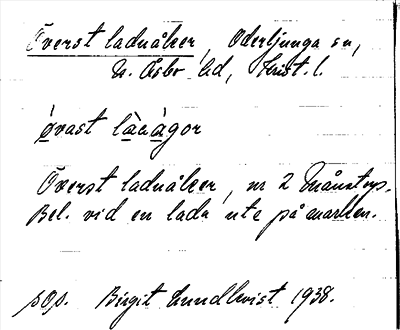 Överst ladnåker, Oderljunga sn,
N. Åsbo hd, Krist. l.
ǿvast làaàgor
Överst ladnåker, nr 2 Månstorp.
Bel. vid en lada ute på marken.
sop. Birgit Lundkvist 1938.